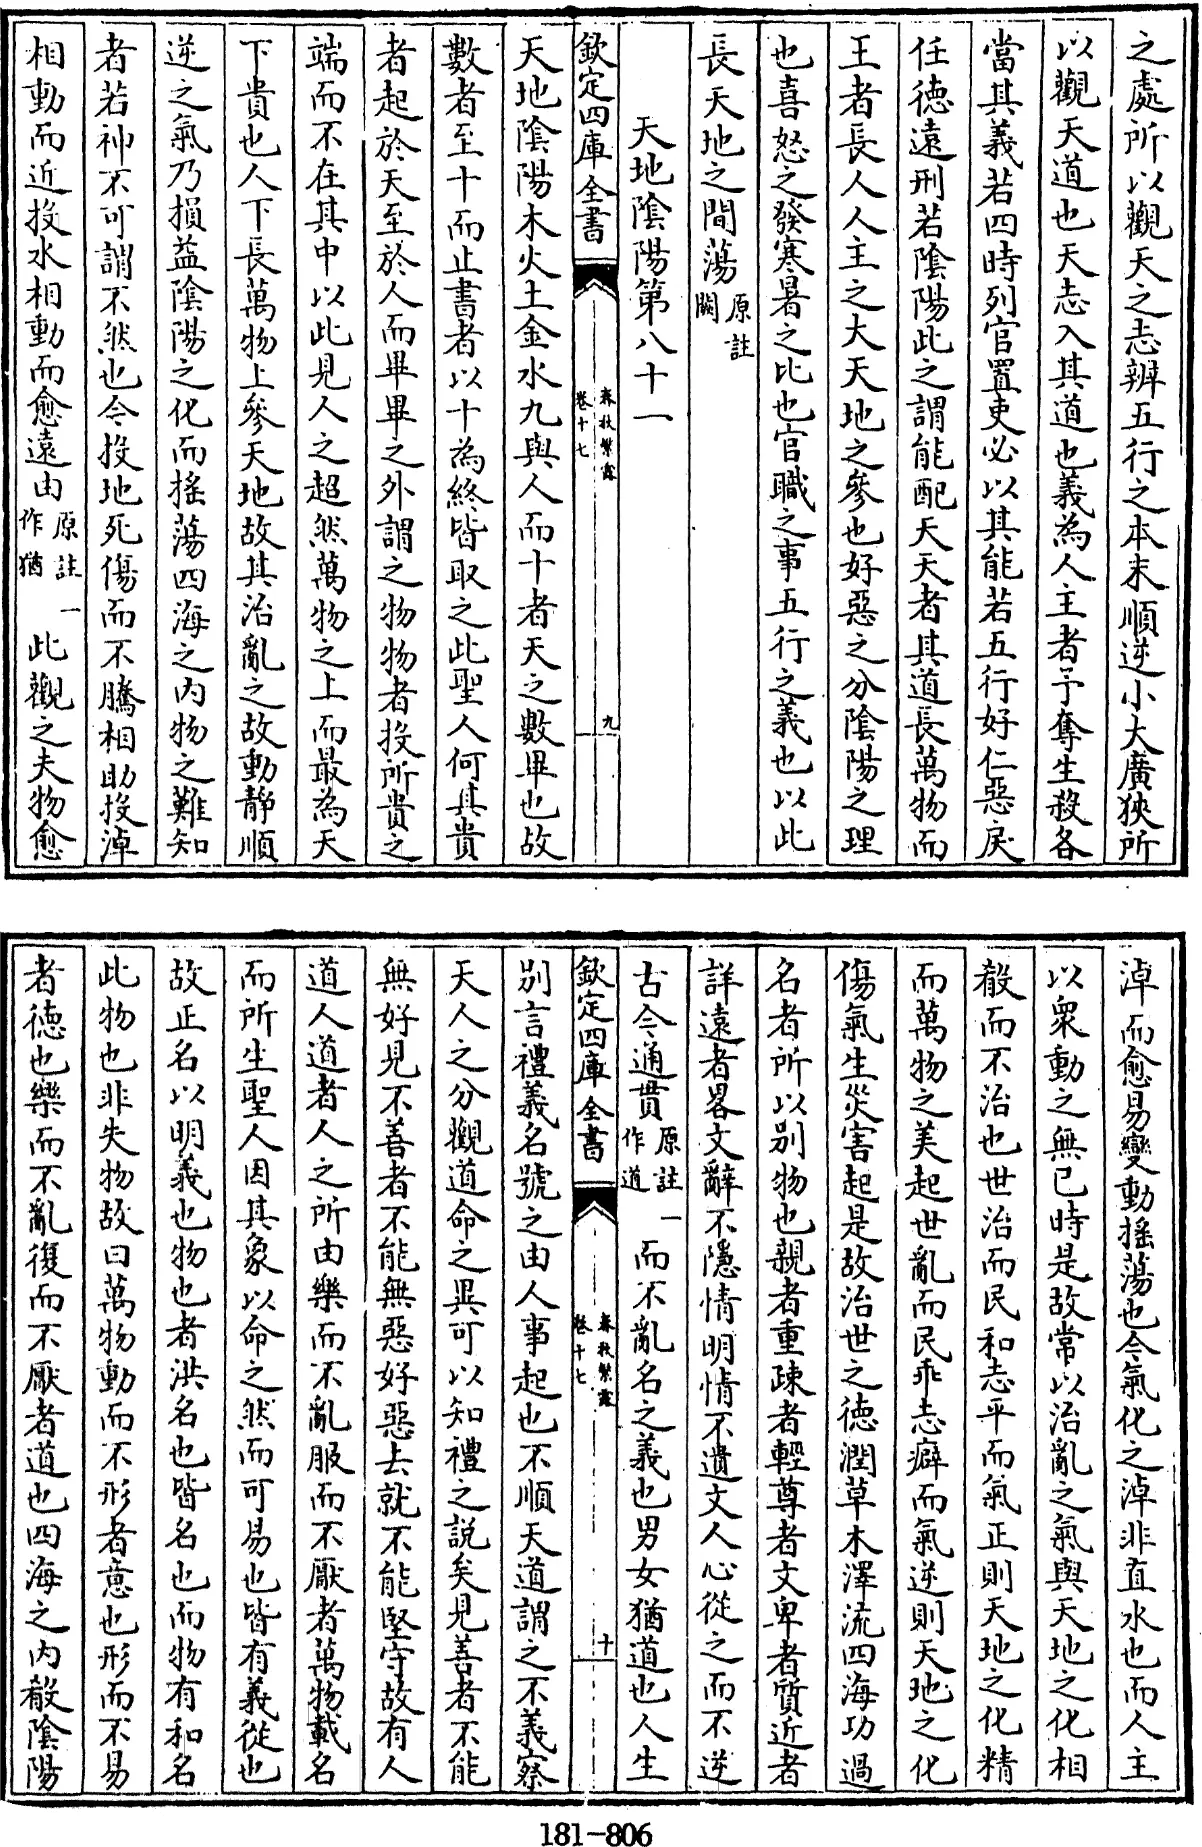 之處所以觀天之志辨五行之本末順逆小大廣狹所
以觀天道也天志入其道也義為人主者予奪生殺各
當其義若四時列官置吏必以其能若五行好仁惡戾
任徳遠刑若隂陽此之謂能配天天者其道長萬物而
王者長人人主之大天地之參也好惡之分隂陽之理
也喜怒之發寒暑之比也官職之事五行之義也以此
長天地之間蕩原註闕
天地隂陽第八十一
欽定四庫全書
春秋繁露
卷十七
九
天地隂陽木火土金水九與人而十者天之數畢也故
數者至十而止書者以十為終皆取之此聖人何其貴
者起於天至於人而畢畢之外謂之物物者投所貴之
端而不在其中以此見人之超然萬物之上而最為天
下貴也人下長萬物上參天地故其治亂之故動靜順
逆之氣乃損益隂陽之化而搖蕩四海之内物之難知
者若神不可謂不然也今投地死傷而不騰相助投淖
相動而近投水相動而愈遠由原註一作猶此觀之夫物愈
淖而愈易變動搖蕩也今氣化之淖非直水也而人主
以衆動之無已時是故常以治亂之氣與天地之化相
殽而不治也世治而民和志平而氣正則天地之化精
而萬物之美起世亂而民乖志癖而氣逆則天地之化
傷氣生災害起是故治世之徳潤草木澤流四海功過
名者所以别物也親者重疎者輕尊者文卑者質近者
詳遠者畧文辭不隱情明情不遺文人心從之而不逆
古今通貫原註一作道而不亂名之義也男女猶道也人生
欽定四庫全書
春秋繁露
卷十七
十
别言禮義名號之由人事起也不順天道謂之不義察
天人之分觀道命之異可以知禮之說矣見善者不能
無好見不善者不能無惡好惡去就不能堅守故有人
道人道者人之所由樂而不亂服而不厭者萬物載名
而所生聖人因其象以命之然而可易也皆有義從也
故正名以明義也物也者洪名也皆名也而物有和名
此物也非失物故曰萬物動而不形者意也形而不易
者徳也樂而不亂復而不厭者道也四海之内殽隂陽
181-806